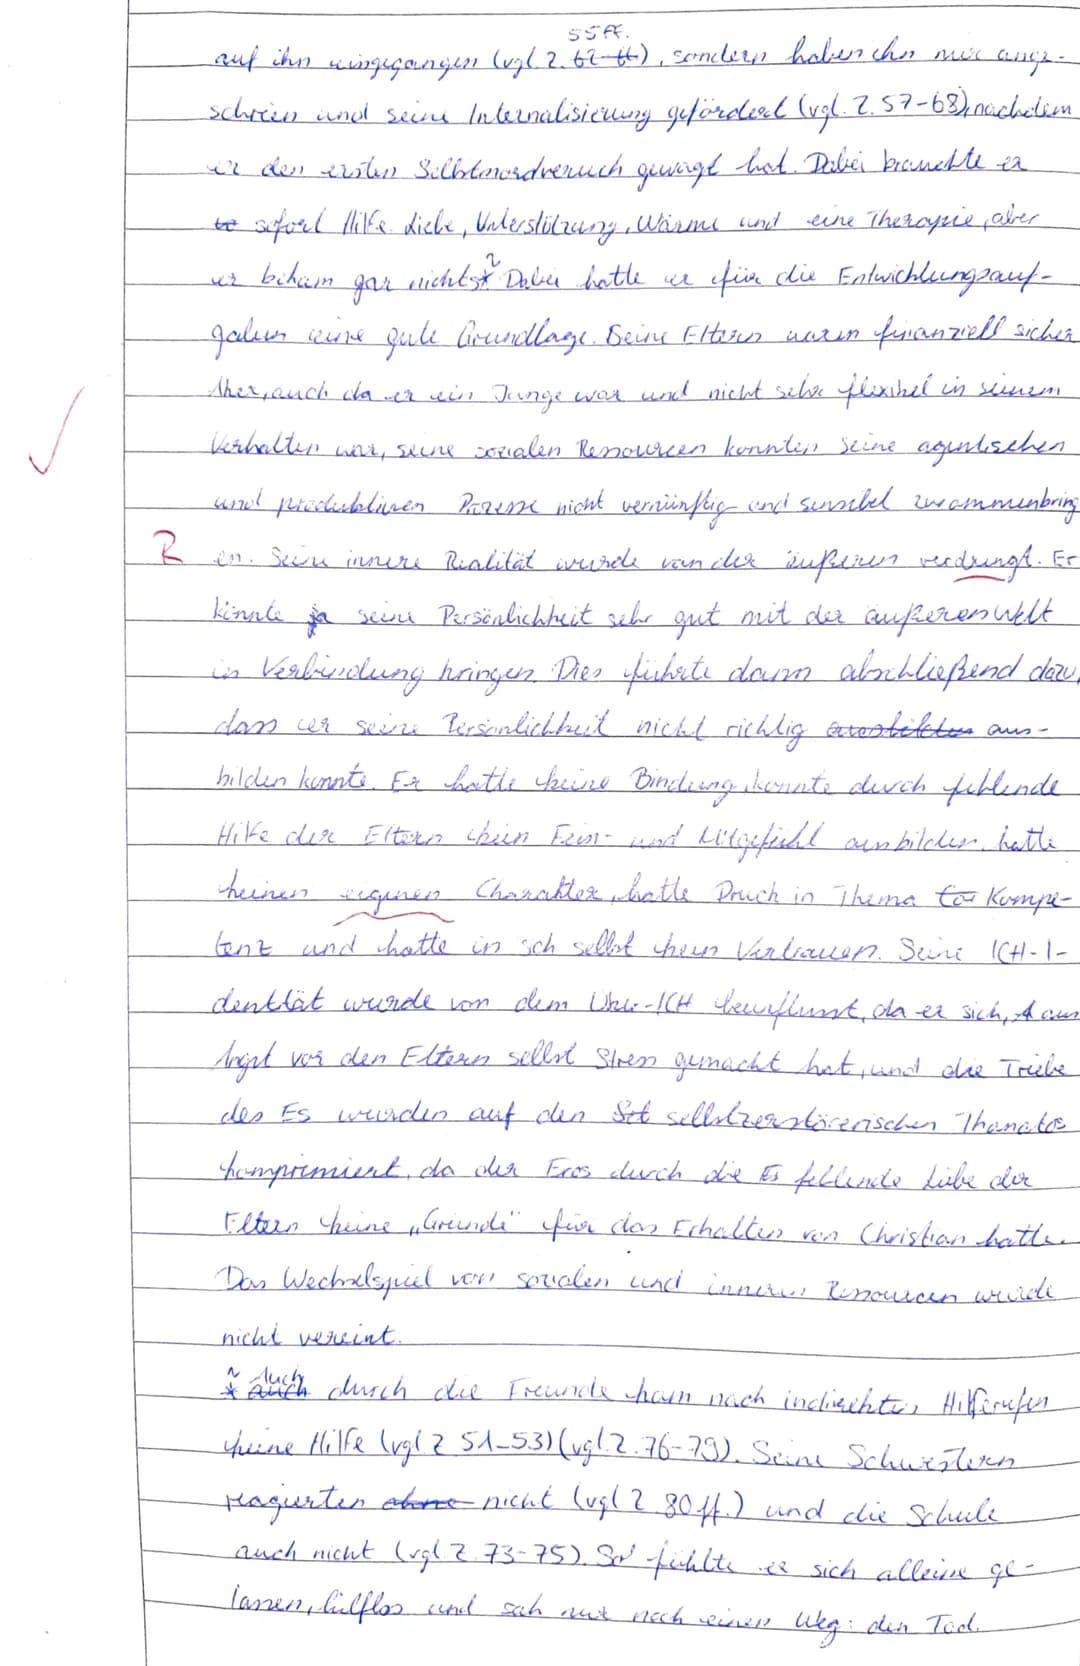 55ff.
auf ihn eingegangen (vgl. Z. 62 ff), sondern haben ihn nur ange-
schrien und seine Internalisierung gefördert (vgl. Z. 57-68), nachdem
er den ersten Selbstmordversuch gewagt hat. Dabei brauchte er
sofort Hilfe. Liebe, Unterstützung, Wärme und eine Therapie, aber
er bekam gar nichts*². Dabei hatte er für die Entwicklungsauf-
gaben eine gute Grundlage. Seine Eltern waren finanziell sicher
Aber, auch da er ein Junge war und nicht sehr flexibel in seinem
Verhalten war, seine sozialen Ressourcen konnten seine agentischen
und produktiven Prozesse nicht vernünftig und sensibel zusammenbring
R en. Seine innere Realität wurde von der äußeren verdrungt. Er
könnte ja seine Persönlichkeit sehr gut mit der äußeren Welt
in Verbindung bringen. Dies führte dann abschließend dazu,
dass er seine Persönlichkeit nicht richtig aus-
bilden konnte. Er hatte keine Bindung, konnte durch fehlende
Hilfe der Eltern kein Fein- und Mitgefühl ausbilden, hatte
keinen eigenen Charakter, hatte Druck in Thema Kompe-
tenz und hatte in sch selbst kein Vertrauen. Seine ICH-I-
dentität wurde von dem Über-ICH beeinflusst, da er sich, aus
Angst vor den Eltern selbst Stress gemacht hat, und die Triebe
des Es wurden auf den selbstzerstörerischen Thanatos
komprimiert, da der Eros durch die Es fehlende Liebe der
Eltern keine „Gründe" für das Erhalten von Christian hatte.
Das Wechselspiel von sozialen und inneren Ressourcen wurde
nicht vereint.
*² Auch durch die Freunde kam nach indirekten Hilferufen
keine Hilfe (vgl Z 51-53) (vgl. Z. 76-79). Seine Schwestern
reagierten ohne nicht (vgl Z 80ff.) und die Schule
auch nicht (vgl Z. 73-75). So fühlte er sich alleine ge-
lassen, hilflos und sah nur noch einen Weg: den Tod.